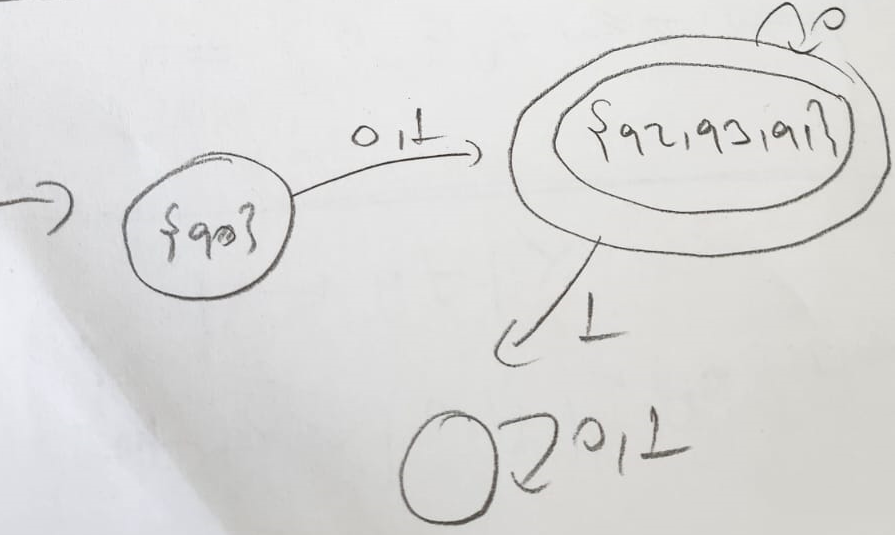 0
0,1
{q2,q3,q1}
{q0}
1
0,1